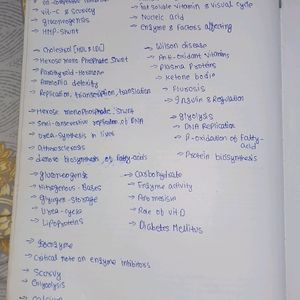 → Vit-C & Scurvy
→ gluconeogenesis
→ HMP-Shunt
→ Fat soluble vitamin & visual cycle
→ Nucleic acid
→ Enzyme & Factors affecting
→ Cholesterol [HDL & LDL]
→ Hexose mono Phosphate shunt
→ Parathyroid-Hormone
→ Ammonia detoxify
→ Replication, transcription, translation
→ Wilson disease
→ Anti-Oxidant Vitamins
→ Plasma Proteins
→ Ketone bodie
→ Flurosis
→ Insulin & Regulation
→ Hexose monophosphate shunt
→ Semi-conservative replication of DNA
→ Urea-synthesis in liver
→ Atherosclerosis
→ denovo biosynthesis of fatty-acids
→ glycolysis
→ DNA Replication
→ β-oxidation of Fatty-acid
→ Protein biosynthesis
→ Nitrogenous-Bases
→ glycogen-storage
→ Urea-cycle
→ Lipoproteins
→ Carbohydrate
→ Enzyme activity
→ Role of vit D
→ Diabetes Mellitus
→ Isoenzyme
→ Critical note on enzyme inhibitors
→ Scurvy
→ Glycolysis